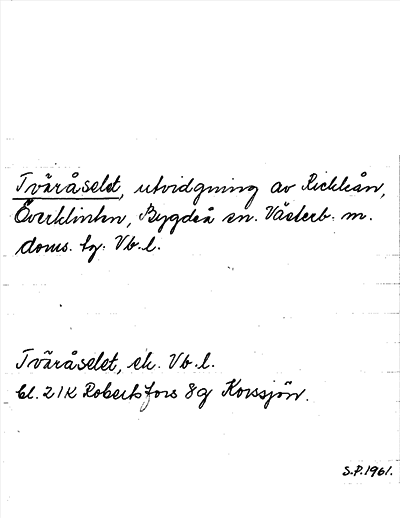 Tväråselet, utvidgning av Rickleån,
Överklinten, Bygdeå sn. Västerb: m.
doms. hg: Vb.l.
Tväråselet, ek. Vb.l.
bl. 21K Robertsfors 8g Korssjön.
S.P.1961.